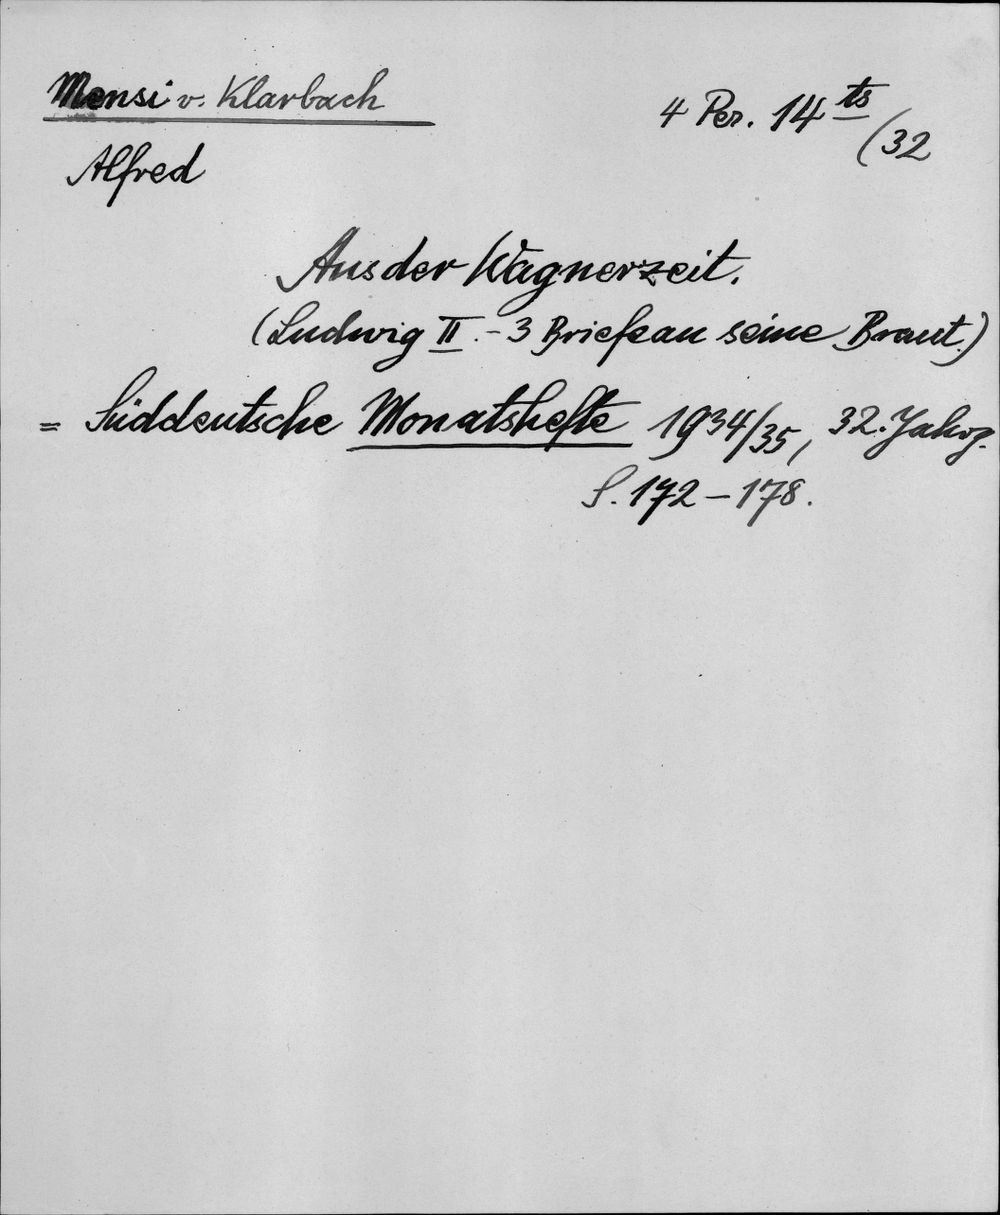 Mensi v. Klarbach
4 Per. 14 ts
(32
Alfred
Aus der Wagnerzeit.
(Ludwig II. - 3 Briefe an seine Braut.)
= Süddeutsche Monatshefte 1934/35, 32. Jahrg.
S. 172 - 178.